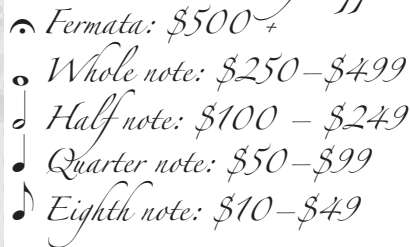 Fermata: $500 +
Whole note: $250–$499
Half note: $100 – $249
Quarter note: $50–$99
Eighth note: $10–$49